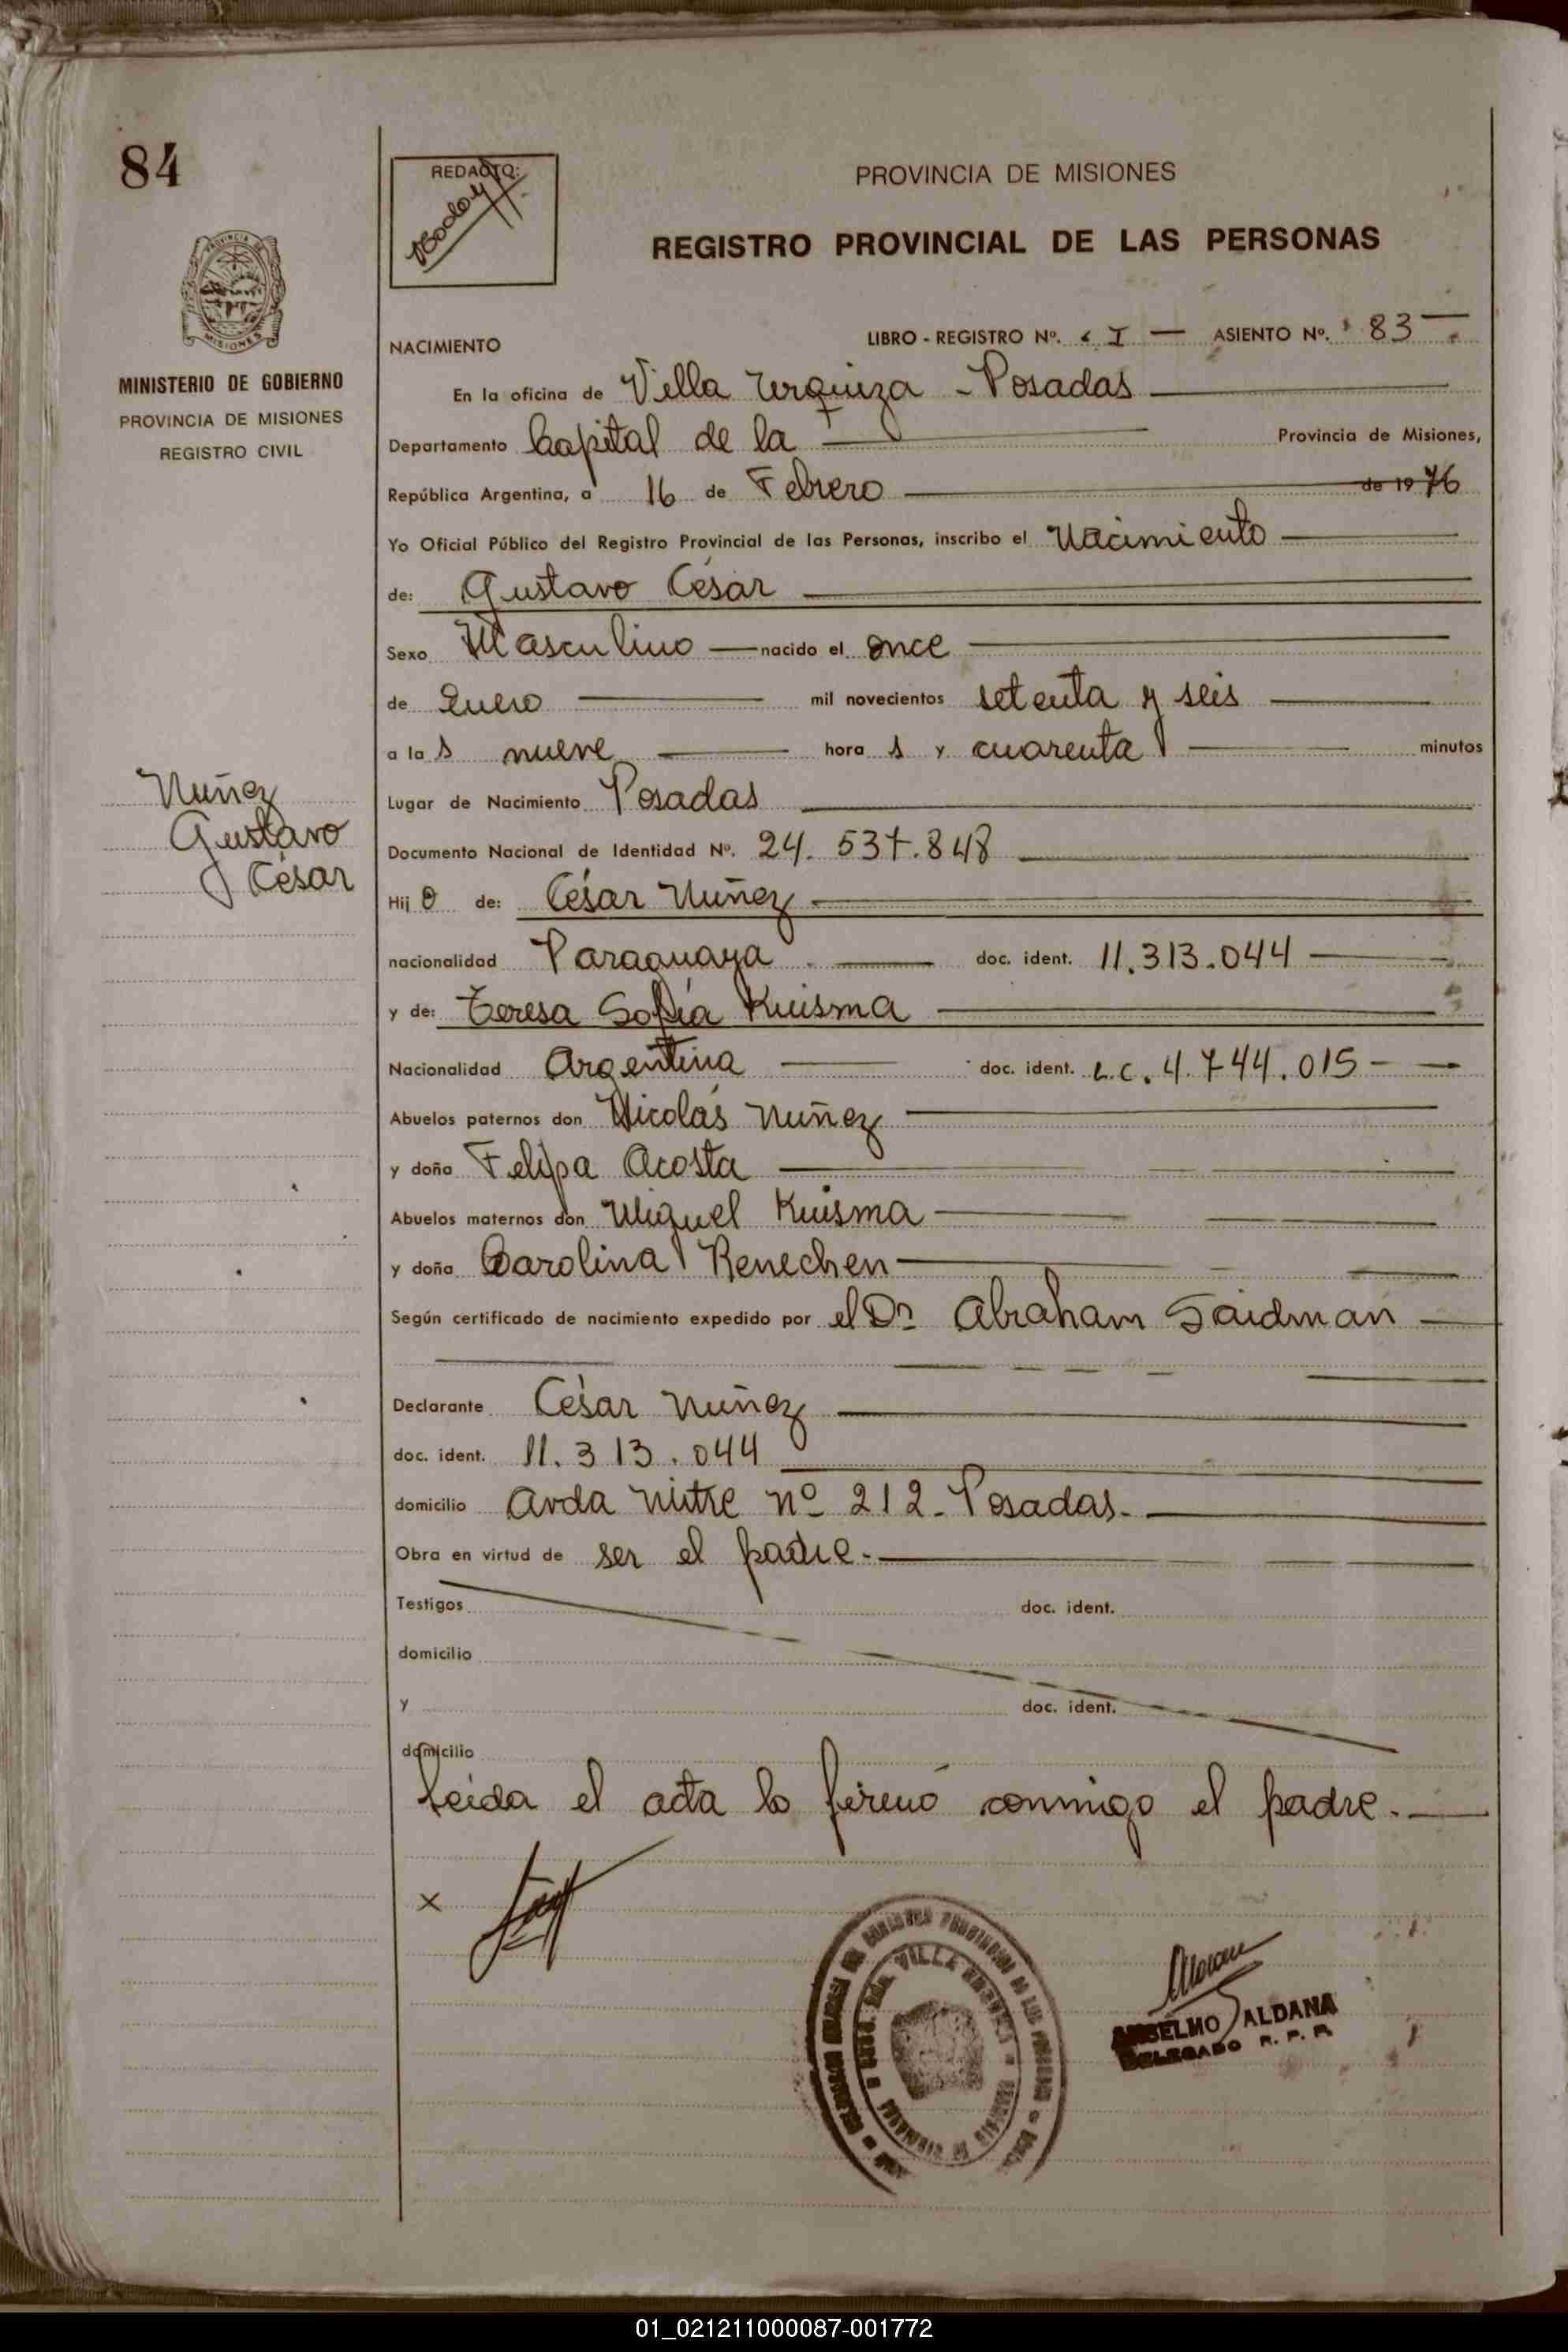 84
REDACTO:
PROVINCIA DE MISIONES
REGISTRO PROVINCIAL DE LAS PERSONAS
PROVINCIA DE
MISIONES
MINISTERIO DE GOBIERNO
PROVINCIA DE MISIONES
REGISTRO CIVIL
NACIMIENTO LIBRO - REGISTRO Nº. I — ASIENTO Nº. 83 —
En la oficina de Villa Urquiza - Posadas
Departamento Capital de la Provincia de Misiones,
República Argentina, a 16 de Febrero de 1976
Yo Oficial Público del Registro Provincial de las Personas, inscribo el Nacimiento
de: Gustavo César
Sexo Masculino — nacido el once
de Enero mil novecientos setenta y seis
a las nueve horas y cuarenta minutos
Lugar de Nacimiento Posadas
Documento Nacional de Identidad Nº. 24.537.848
Nuñez
Gustavo
César
Hijo de: César Nuñez
nacionalidad Paraguaya doc. ident. 11.313.044
y de: Teresa Sofía Kuisma
Nacionalidad Argentina doc. ident. L.C. 4.744.015
Abuelos paternos don Nicolás Nuñez
y doña Felipa Acosta
Abuelos maternos don Miguel Kuisma
y doña Carolina Renechen
Según certificado de nacimiento expedido por el Dr Abraham Saidman
Declarante César Nuñez
doc. ident. 11.313.044
domicilio Avda Mitre nº 212 - Posadas.
Obra en virtud de ser el padre.
Testigos doc. ident.
domicilio
y doc. ident.
domicilio
Leída el acta lo firmó conmigo el padre.
X
VILLA URQUIZA
ANSELMO SALDAÑA
DELEGADO R. P. P.
01_021211000087-001772